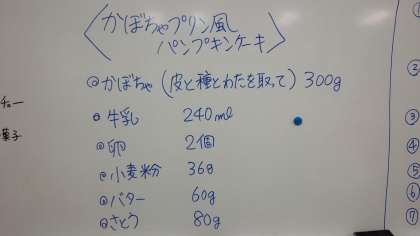 〈かぼちゃプリン風
パンプキンケーキ〉
◎かぼちゃ（皮と種とわたを取って）300g
◎牛乳 240ml
◎卵 2個
◎小麦粉 36g
◎バター 60g
◎さとう 80g
チョー
菓子
①
②
③
④
⑤
⑥
⑦